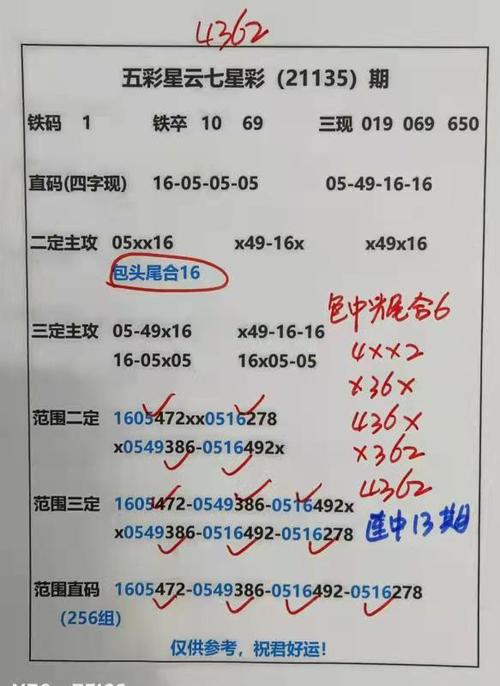 4362
五彩星云七星彩（21135）期
铁码 1 铁卒 10 69 三现 019 069 650
直码(四字现) 16-05-05-05 05-49-16-16
二定主攻 05xx16 x49-16x x49x16
包头尾合16
包中头尾合6
三定主攻 05-49x16 x49-16-16
4xx2
16-05x05 16x05-05
x36x
范围二定 1605472xx0516278
436x
x0549386-0516492x
x362
4362
范围三定 1605472-0549386-0516492x
x0549386-0516492-0516278
连中13期
范围直码 1605472-0549386-0516492-0516278
(256组)
仅供参考，祝君好运！